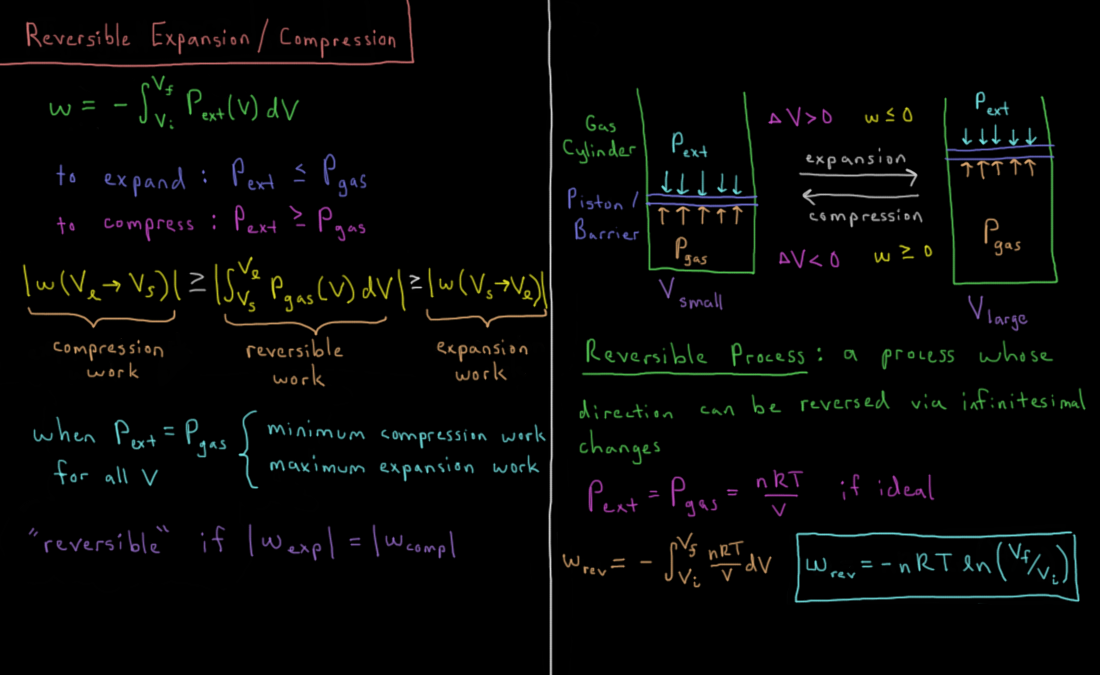 Reversible Expansion / Compression
w = - ∫_{V_i}^{V_f} P_ext(V) dV
to expand : P_ext ≤ P_gas
to compress : P_ext ≥ P_gas
|w(V_ℓ → V_s)| ≥ |∫_{V_s}^{V_ℓ} P_gas(V) dV| ≥ |w(V_s → V_ℓ)|
compression work
reversible work
expansion work
when P_ext = P_gas for all V
minimum compression work
maximum expansion work
"reversible" if |w_exp| = |w_comp|
Gas Cylinder
Piston / Barrier
P_ext
P_gas
V_small
ΔV > 0 w ≤ 0
expansion
compression
ΔV < 0 w ≥ 0
P_ext
P_gas
V_large
Reversible Process : a process whose
direction can be reversed via infinitesimal
changes
P_ext = P_gas = nRT/V if ideal
w_rev = - ∫_{V_i}^{V_f} nRT/V dV
w_rev = - nRT ln (V_f/V_i)